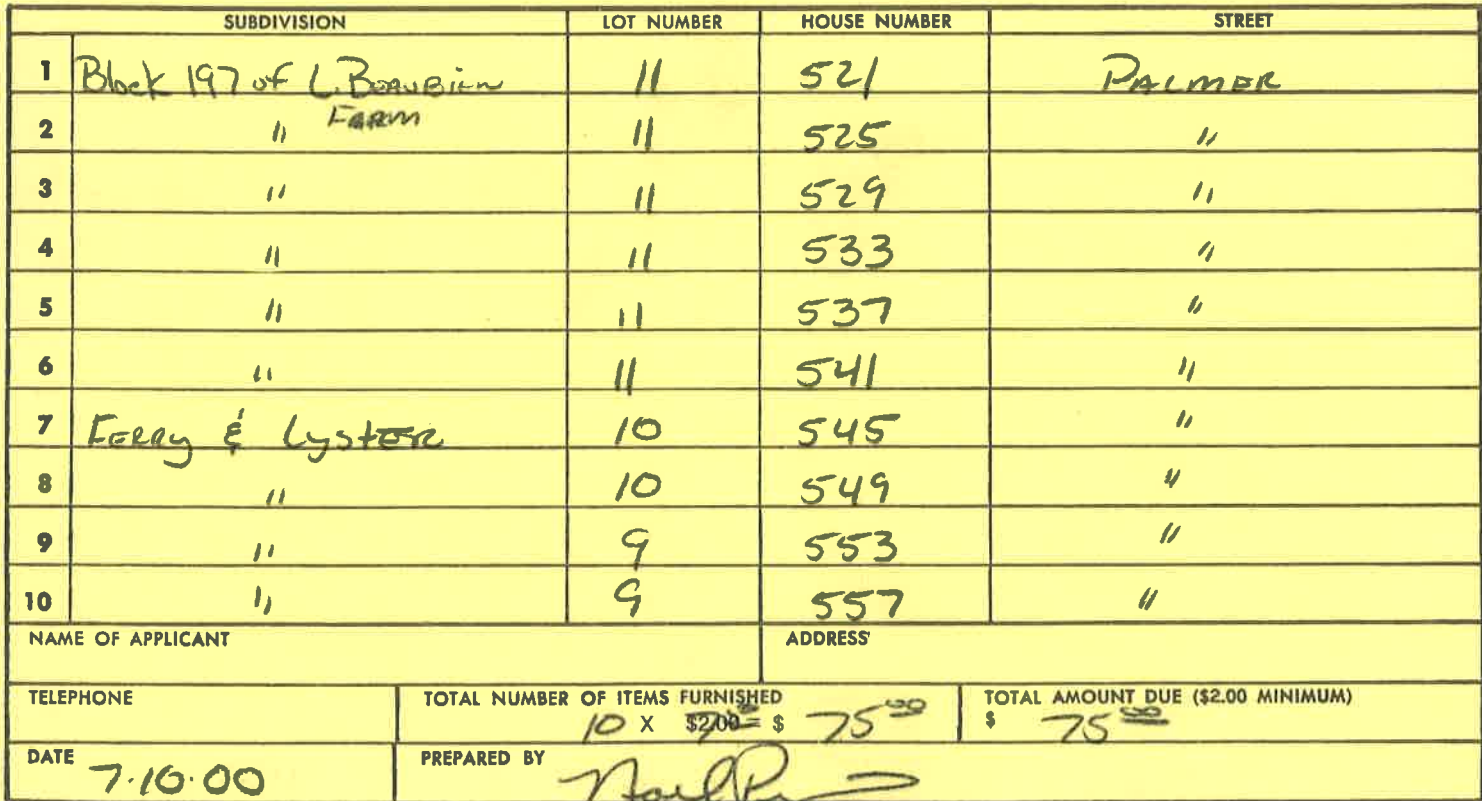 SUBDIVISION LOT NUMBER HOUSE NUMBER STREET
1 Block 197 of L. Beaubien 11 521 PALMER
FARM
2 " 11 525 "
3 " 11 529 "
4 " 11 533 "
5 " 11 537 "
6 " 11 541 "
7 Ferry & Lyster 10 545 "
8 " 10 549 "
9 " 9 553 "
10 " 9 557 "
NAME OF APPLICANT ADDRESS
TELEPHONE TOTAL NUMBER OF ITEMS FURNISHED TOTAL AMOUNT DUE ($2.00 MINIMUM)
10 X $2.00 = $ 75 00 $ 75 00
DATE 7.10.00 PREPARED BY